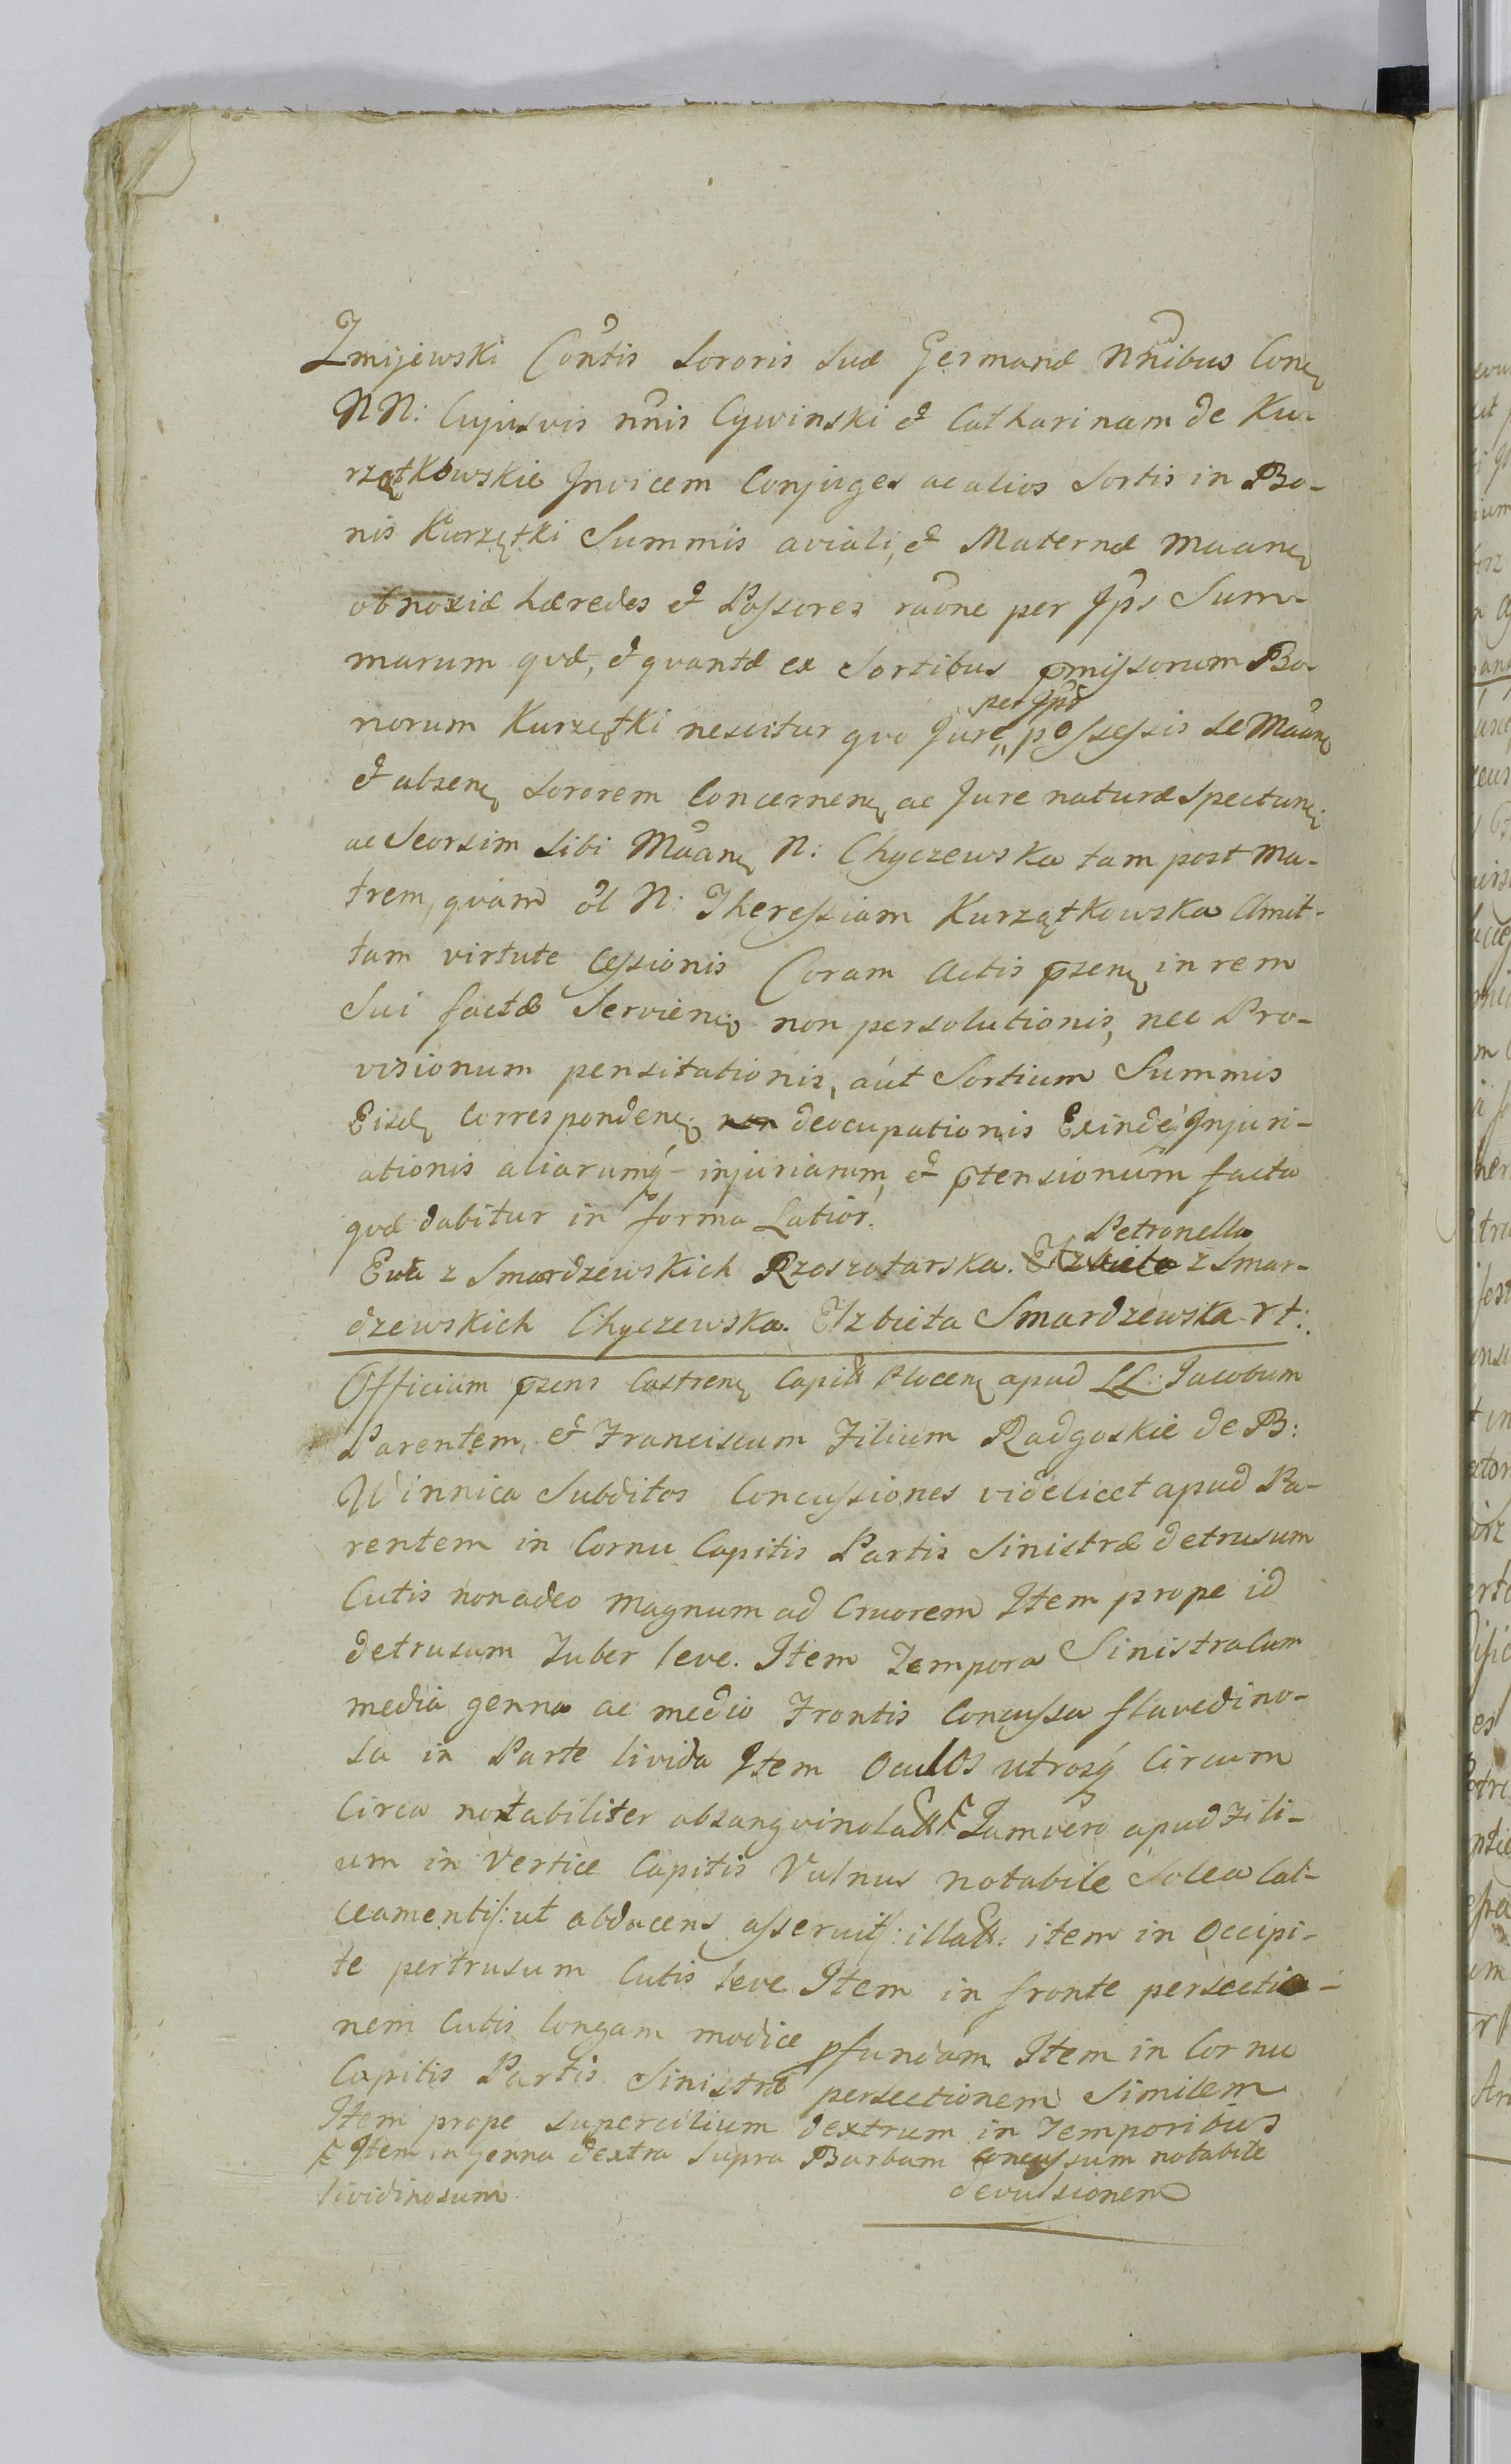 Zmijewski Contis Sororis Suæ Germanæ Nnibus Conę
NN: Cujusvis nnis Cywinski et Catharinam de Ku-
rzątkowskie Jnvicem Conjuges ac alios Sortis in Bo-
nis Kurzątki Summis aviali, et Maternæ Maanę
obnoxiæ hæredes et Possores raone per Jps Sum-
marum qvæ, et qvantæ ex Sortibus pmissorum Bo-
norum Kurzątki nescitur qvo Jure, per Jps possessis se Maanę
et absenę Sororem Concernenę ac Jure naturæ Spectanę
ac Seorsim Sibi Maanę N: Chyczewska tam post Ma-
trem, qvam ol N: Theressiam Kurzątkowska Amit-
tam virtute Cessionis Coram Actis pzenę in rem
Sui factæ Servienę non persolutionis, nec Pro-
visionum pensitationis, aut Sortium Summis
Eisdę Correspondenę non deocupationis Exindeq Jnjuri-
ationis aliarumq injuriarum, et ptensionum facta
qvæ dabitur in forma Latior.
Ewa z Smardzewskich Rzeszotarska. Elzbieta Petronella z Smar-
dzewskich Chyczewska. Elzbieta Smardzewska rt:
Officium pzens Castrenę Capitt Plocenę apud LL: Jacobum
Parentem, et Franciscum Filium Radgoskie de B:
Winnica Subditos Concussiones videlicet apud Pa-
rentem in Cornu Capitis Partis Sinistræ detrusum
Cutis non adeo magnum ad Cruorem Item prope id
detrusum Tuber leve. Item Tempora Sinistra Cum
media genna ac medio Frontis Concussa flavedino-
sa in Parte livida Item Oculos utrosq Circum
Circa notabiliter absangvinolatt Jamvero apud Fili-
um in Vertice Capitis Vulnus notabile Solea Cal-
ceamenti /: ut abducens asseruit :/ illatt: item in Occipi-
te pertrusum Cutis leve Item in fronte persectio-
nem Cutis longam modice pfundam Item in Cornu
Capitis Partis Sinistræ persectionem Similem
Item prope supercilium dextrum in Temporibus
Item in genna dextra supra Barbam concussum notabile
lividinosum
devulsionem